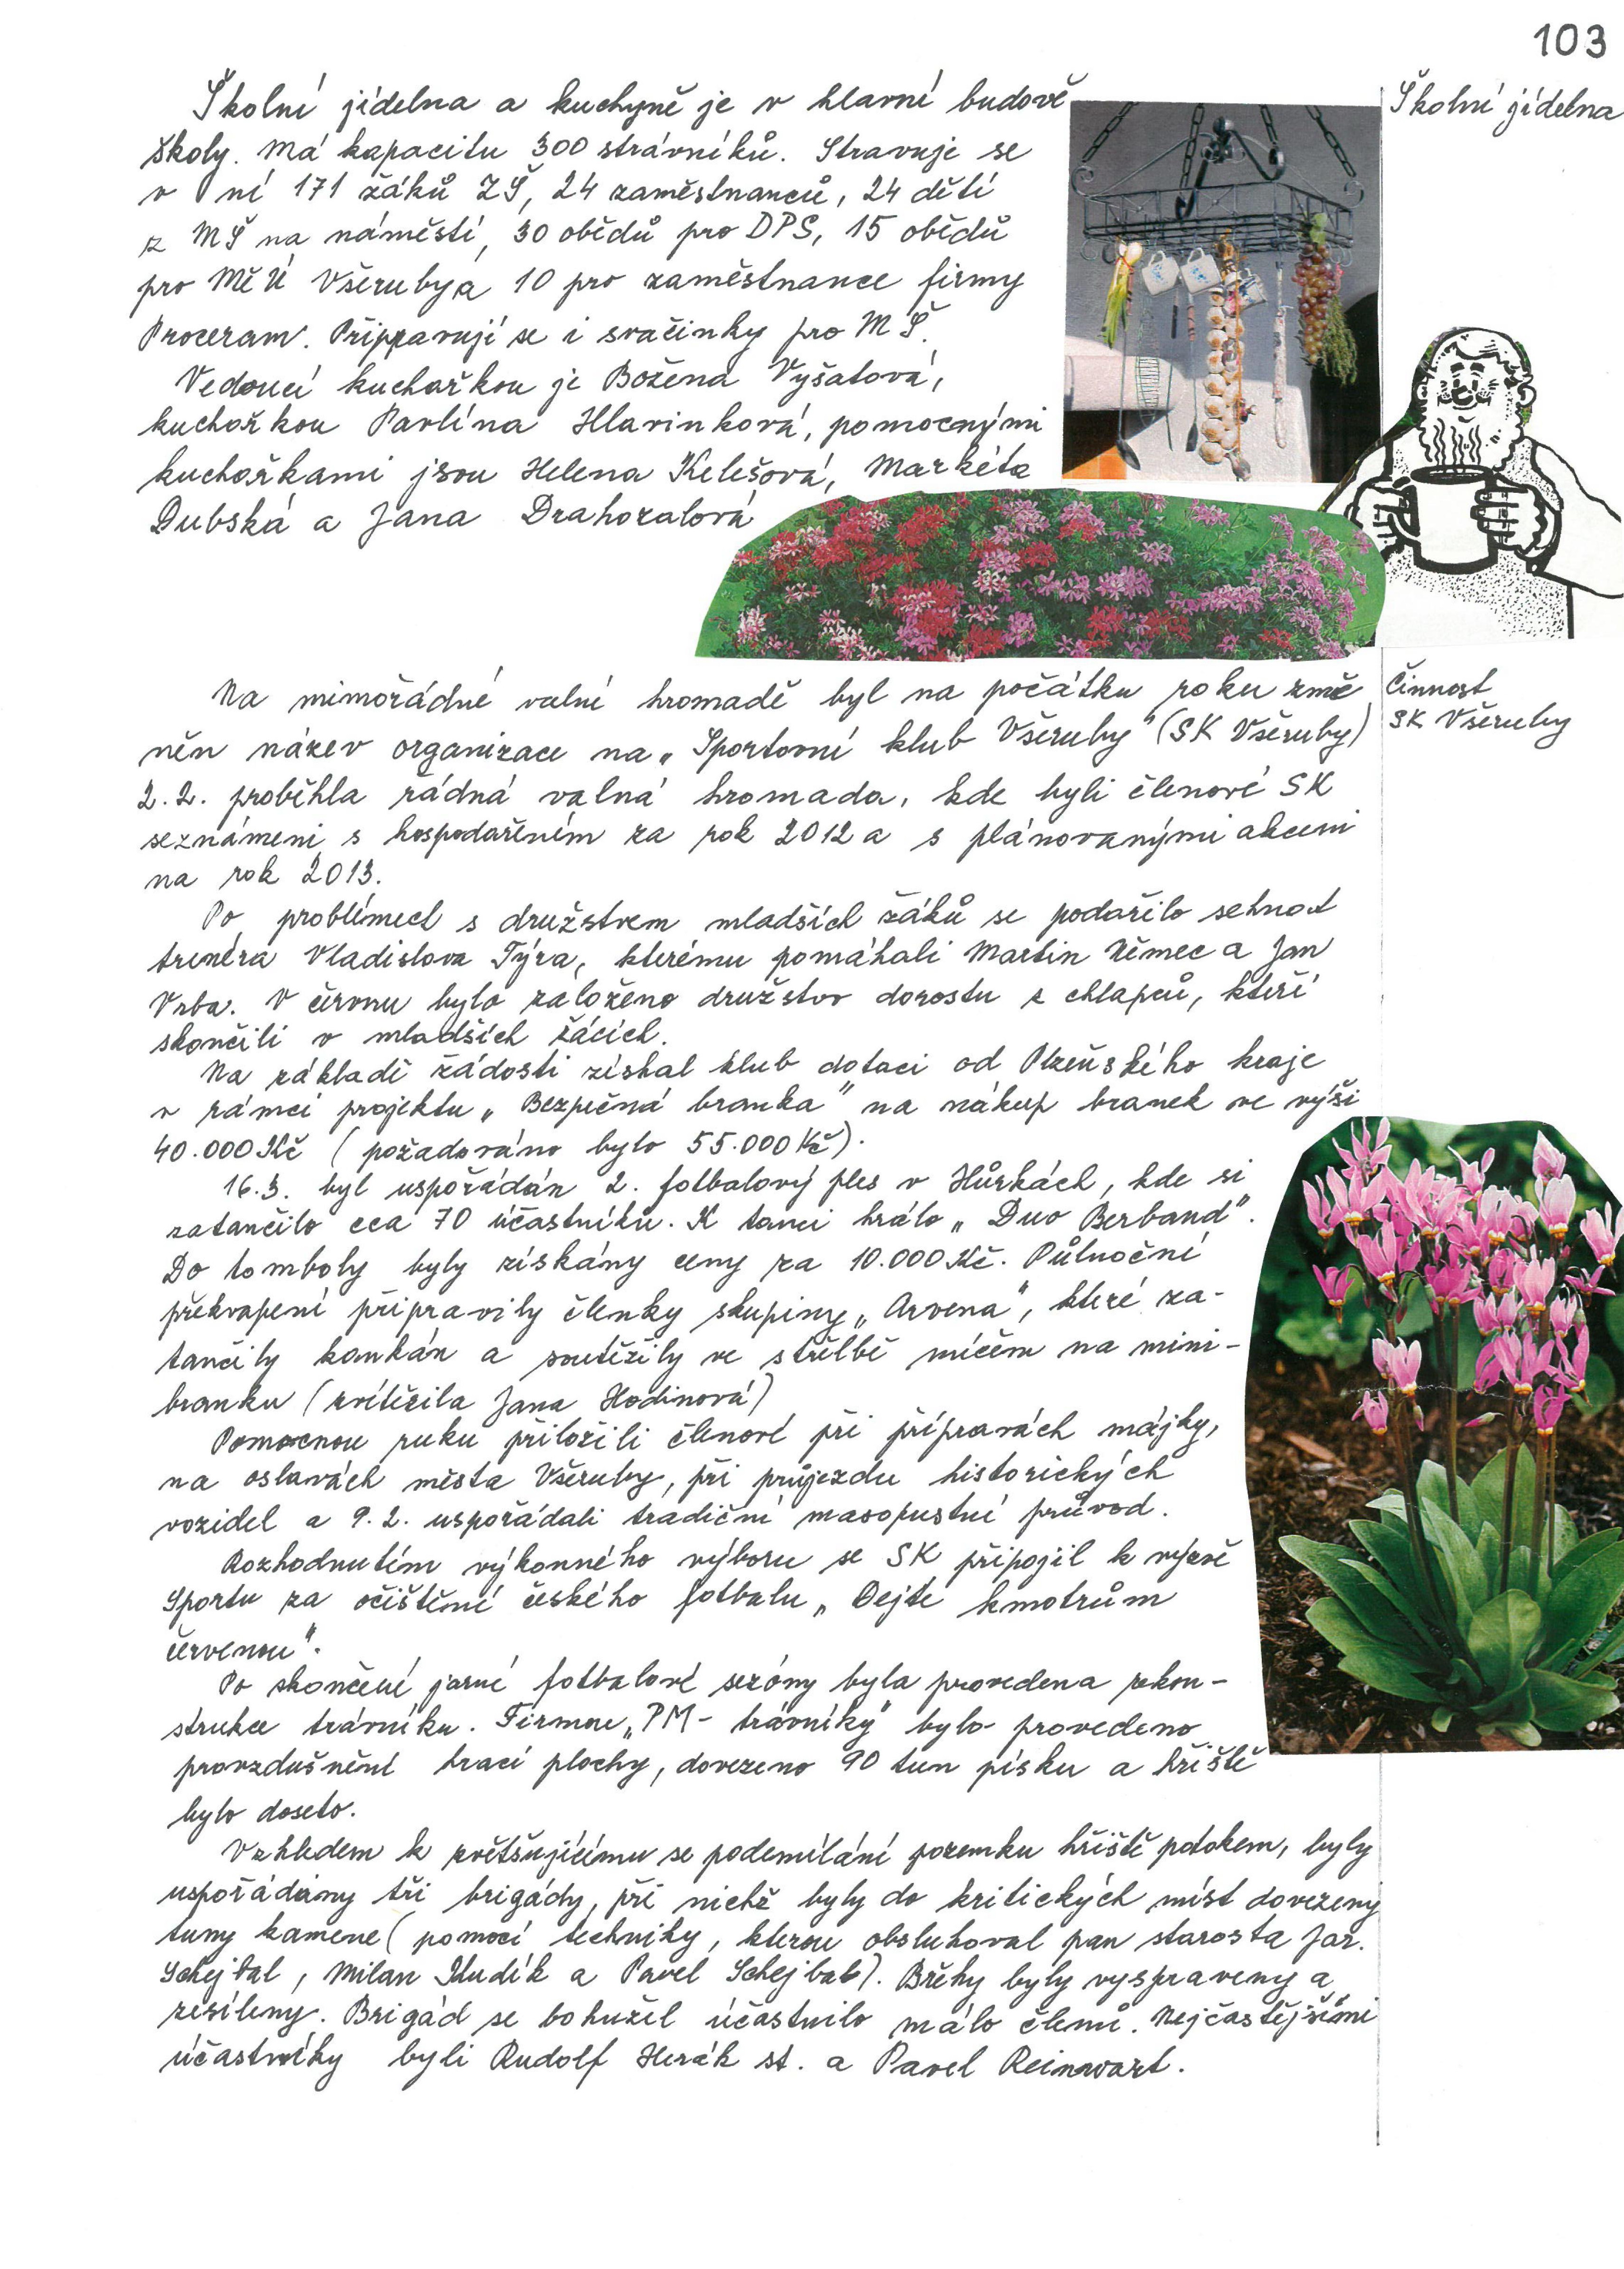 103
Školní jídelna
Školní jídelna a kuchyně je v hlavní budově
školy. Má kapacitu 300 strávníků. Stravuje se
v ní 171 žáků ZŠ, 24 zaměstnanců, 24 dětí
z MŠ na náměstí, 30 obědů pro DPS, 15 obědů
pro MěÚ Všeruby a 10 pro zaměstnance firmy
Proceram. Připravují se i svačinky pro MŠ.
Vedoucí kuchařkou je Božena Vyšatová,
kuchařkou Pavlína Hlavinková, pomocnými
kuchařkami jsou Helena Kelešová, Markéta
Dubská a Jana Drahozalová
Činnost
SK Všeruby
Na mimořádné valné hromadě byl na počátku roku změ
něn název organizace na „Sportovní klub Všeruby" (SK Všeruby)
2.2. proběhla řádná valná hromada, kde byli členové SK
seznámeni s hospodařením za rok 2012 a s plánovanými akcemi
na rok 2013.
Po problémech s družstvem mladších žáků se podařilo sehnat
trenéra Vladislava Týra, kterému pomáhali Martin Němec a Jan
Vrba. V červnu bylo založeno družstvo dorostu z chlapců, kteří
skončili v mladších žácích.
Na základě žádosti získal klub dotaci od Plzeňského kraje
v rámci projektu „Bezpečná branka" na nákup branek ve výši
40.000 Kč (požadováno bylo 55.000 Kč).
16.3. byl uspořádán 2. fotbalový ples v Hůrkách, kde si
zatančilo cca 70 účastníků. K tanci hrálo „Duo Berband".
Do tomboly byly získány ceny za 10.000 Kč. Půlnoční
překvapení připravily členky skupiny „Arvena", které za-
tančily kankán a soutěžily ve střelbě míčem na mini-
branku (zvítězila Jana Hodinová)
Pomocnou ruku přiložili členové při přípravách májky,
na oslavách města Všeruby, při průjezdu historických
vozidel a 9.2. uspořádali tradiční masopustní průvod.
Rozhodnutím výkonného výboru se SK připojil k výzvě
Sportu za očištění českého fotbalu „Dejte kmotrům
červenou".
Po skončení jarní fotbalové sezóny byla provedena rekon-
strukce trávníku. Firmou „PM- trávníky" bylo provedeno
provzdušnění hrací plochy, dovezeno 90 tun písku a hřiště
bylo doseto.
Vzhledem k zvětšujícímu se podemílání pozemku hřiště potokem, byly
uspořádány tři brigády, při nichž byly do kritických míst dovezeny
tuny kamene (pomocí techniky, kterou obsluhoval pan starosta Jar.
Schejbal, Milan Kudík a Pavel Schejbal). Břehy byly vyspraveny a
zesíleny. Brigád se bohužel účastnilo málo členů. Nejčastějšími
účastníky byli Rudolf Herák st. a Pavel Reinwart.